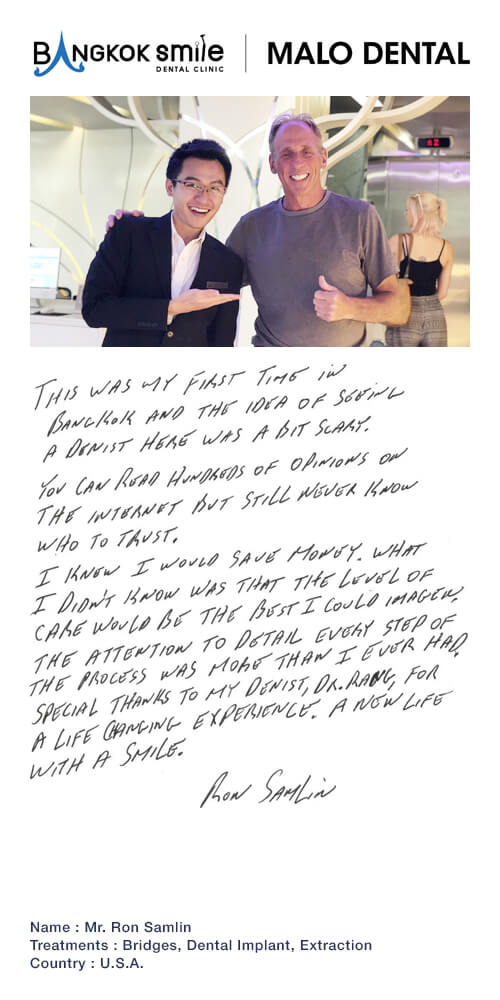 BANGKOK smile
DENTAL CLINIC
MALO DENTAL
THIS WAS MY FIRST TIME IN
BANGKOK AND THE IDEA OF SEEING
A DENIST HERE WAS A BIT SCARY.
YOU CAN READ HUNDREDS OF OPINIONS ON
THE INTERNET BUT STILL NEVER KNOW
WHO TO TRUST.
I KNEW I WOULD SAVE MONEY. WHAT
I DIDN'T KNOW WAS THAT THE LEVEL OF
CARE WOULD BE THE BEST I COULD IMAGEN.
THE ATTENTION TO DETAIL EVERY STEP OF
THE PROCESS WAS MORE THAN I EVER HAD.
SPECIAL THANKS TO MY DENIST, DR. RANG, FOR
A LIFE CHANGING EXPERIENCE. A NEW LIFE
WITH A SMILE.
RON SAMLIN
Name : Mr. Ron Samlin
Treatments : Bridges, Dental Implant, Extraction
Country : U.S.A.